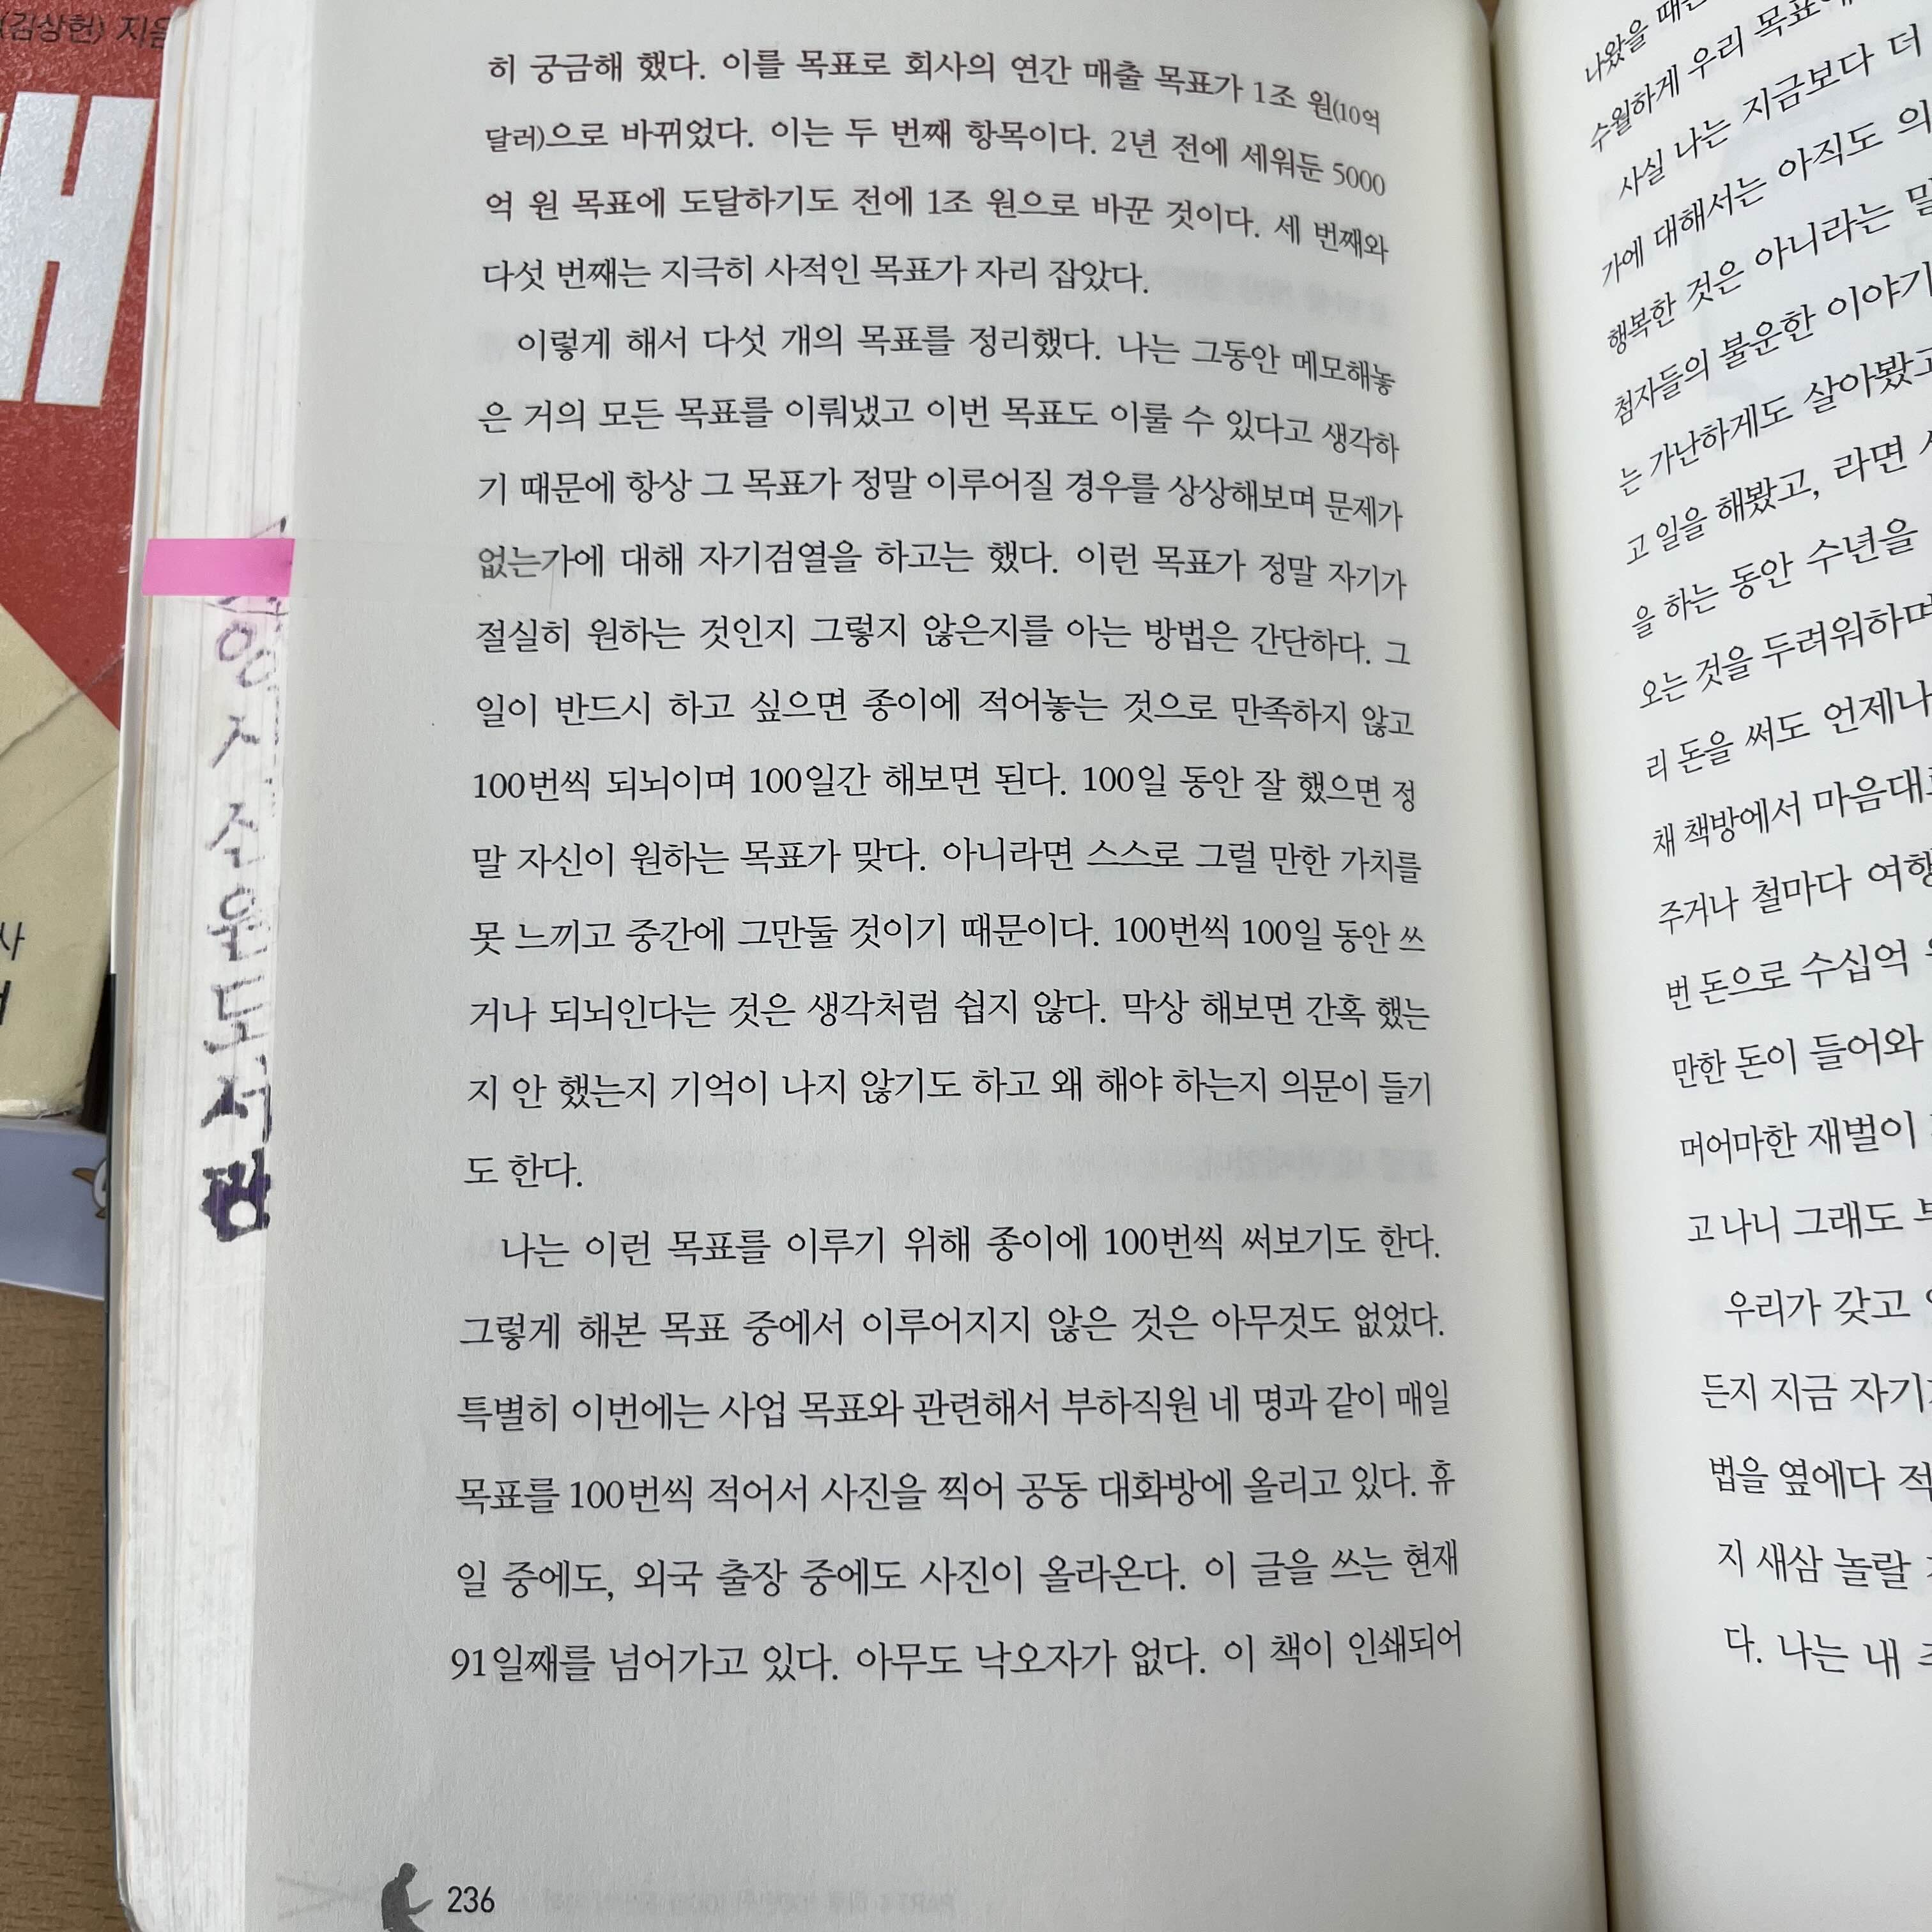 (김상헌) 지음
히 궁금해 했다. 이를 목표로 회사의 연간 매출 목표가 1조 원(10억
달러)으로 바뀌었다. 이는 두 번째 항목이다. 2년 전에 세워둔 5000
억 원 목표에 도달하기도 전에 1조 원으로 바꾼 것이다. 세 번째와
다섯 번째는 지극히 사적인 목표가 자리 잡았다.
이렇게 해서 다섯 개의 목표를 정리했다. 나는 그동안 메모해놓
은 거의 모든 목표를 이뤄냈고 이번 목표도 이룰 수 있다고 생각하
기 때문에 항상 그 목표가 정말 이루어질 경우를 상상해보며 문제가
없는가에 대해 자기검열을 하고는 했다. 이런 목표가 정말 자기가
절실히 원하는 것인지 그렇지 않은지를 아는 방법은 간단하다. 그
일이 반드시 하고 싶으면 종이에 적어놓는 것으로 만족하지 않고
100번씩 되뇌이며 100일간 해보면 된다. 100일 동안 잘 했으면 정
말 자신이 원하는 목표가 맞다. 아니라면 스스로 그럴 만한 가치를
못 느끼고 중간에 그만둘 것이기 때문이다. 100번씩 100일 동안 쓰
거나 되뇌인다는 것은 생각처럼 쉽지 않다. 막상 해보면 간혹 했는
지 안 했는지 기억이 나지 않기도 하고 왜 해야 하는지 의문이 들기
도 한다.
나는 이런 목표를 이루기 위해 종이에 100번씩 써보기도 한다.
그렇게 해본 목표 중에서 이루어지지 않은 것은 아무것도 없었다.
특별히 이번에는 사업 목표와 관련해서 부하직원 네 명과 같이 매일
목표를 100번씩 적어서 사진을 찍어 공동 대화방에 올리고 있다. 휴
일 중에도, 외국 출장 중에도 사진이 올라온다. 이 글을 쓰는 현재
91일째를 넘어가고 있다. 아무도 낙오자가 없다. 이 책이 인쇄되어
236
나왔을
수월하게 우리
사실 나는 지금보다 더
가에 대해서는 아직도
행복한 것은 아니라는
첨자들의 불운한 이야기
는 가난하게도 살아봤고
고 일을 해봤고, 라면
을 하는 동안 수년을
오는 것을 두려워하며
리 돈을 써도 언제나
채 책방에서
주거나 철마다
번 돈으로 수십억
만한 돈이 들어와
머어마한 재벌이
고 나니 그래도
우리가 갖고
든지 지금
법을 옆에다
지 새삼 놀랄
다. 나는 내